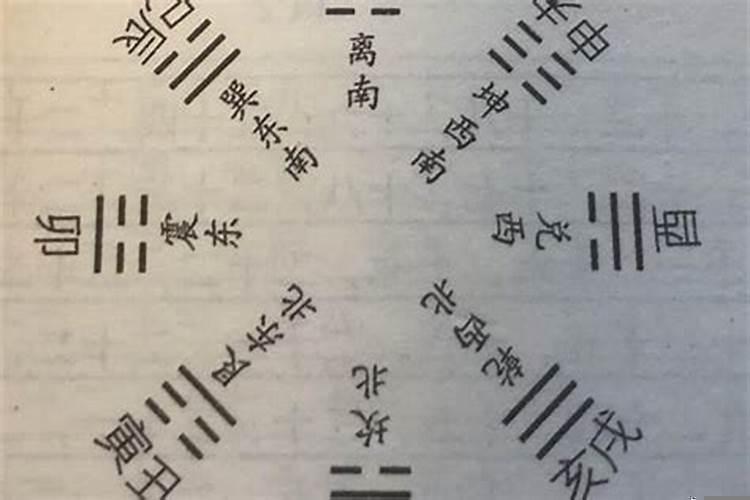 离南
坤西南
未申
兑西
酉
乾西北
戌亥
坎北
艮东北
丑寅
震东
卯
巽东南
辰巳